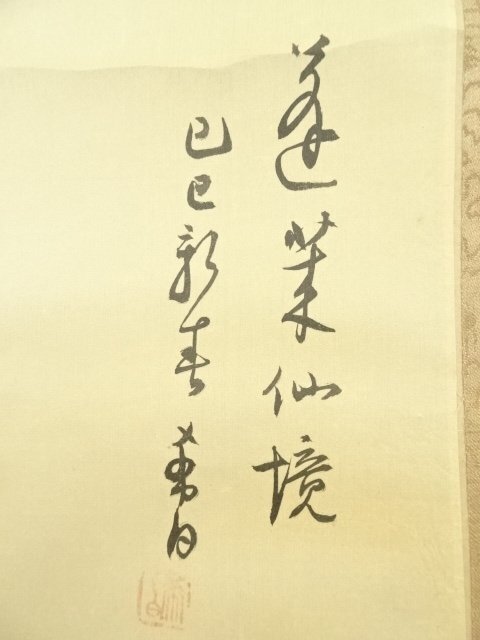 蓬莱仙境
己巳新春 希白